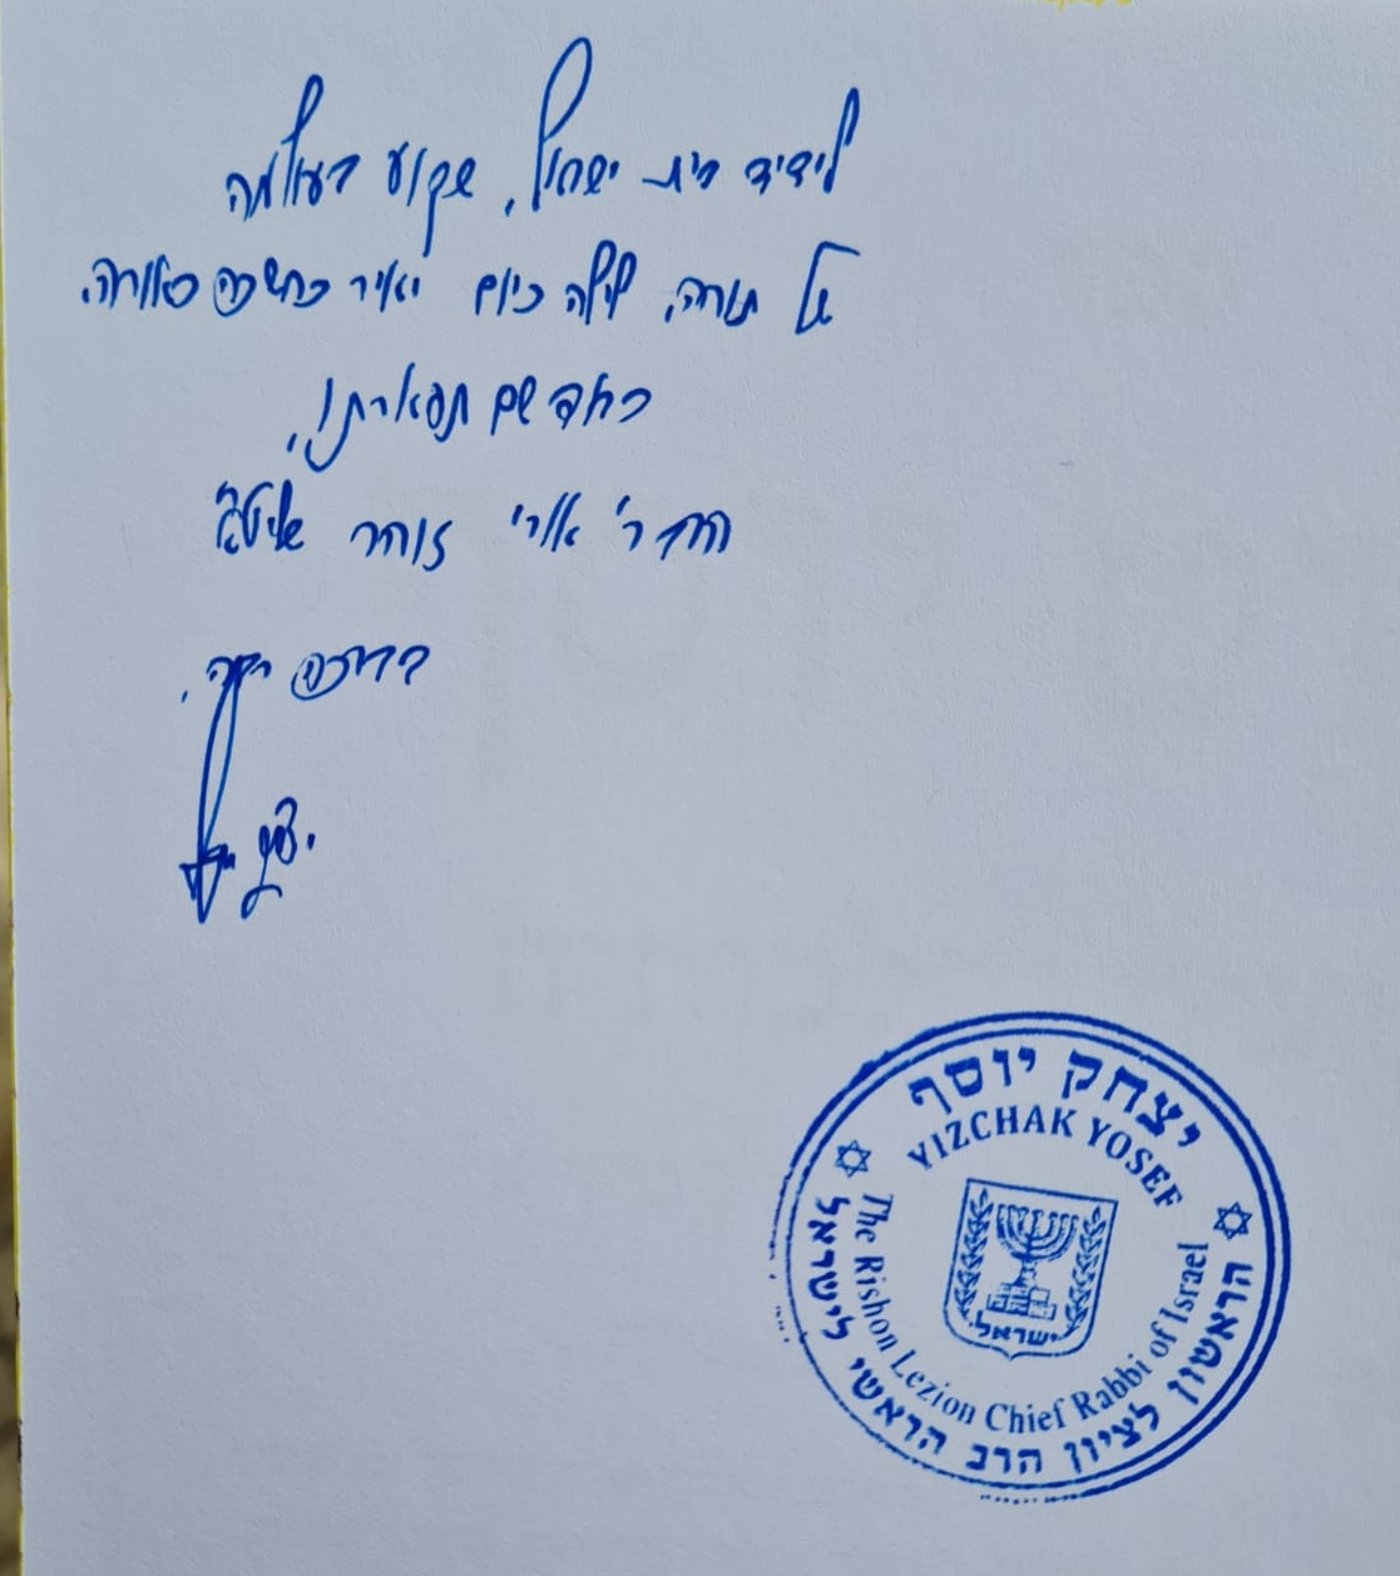 לידיד בית ישראל, שקוע בעולמה
של תורה, לילה כיום יאיר כחשכה כאורה.
כבוד שם תפארתו,
הרב ר' אורי זוהר שליט"א
בברכה רבה,
יצחק יוסף
יצחק יוסף
YIZCHAK YOSEF
The Rishon Lezion Chief Rabbi of Israel
הראשון לציון הרב הראשי לישראל
ישראל